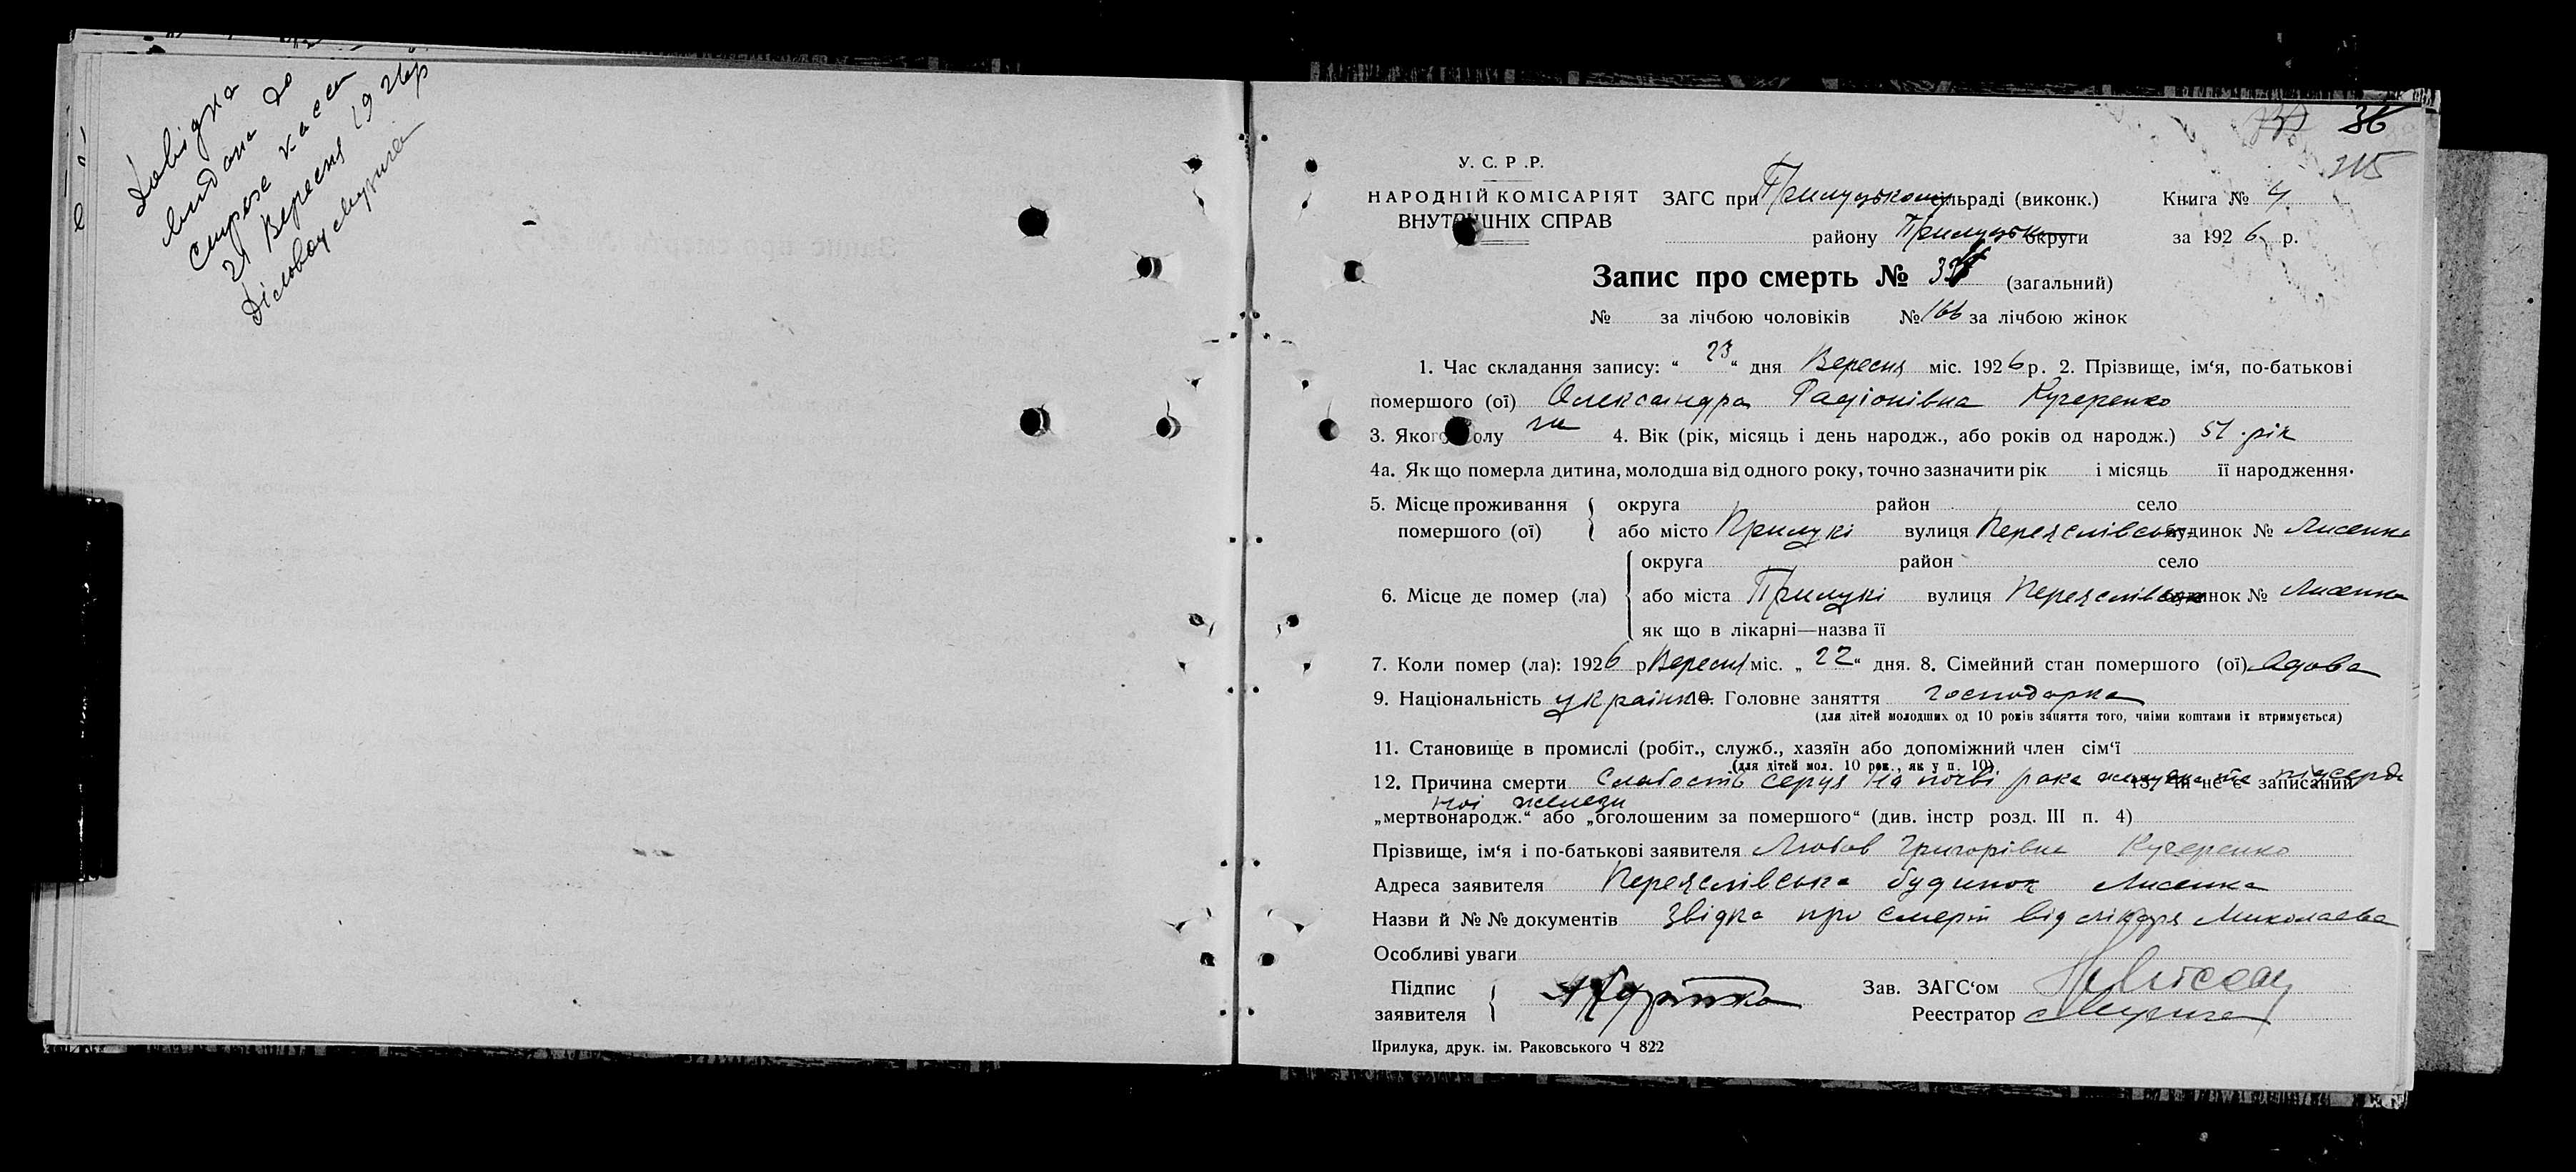 Довідка
видана до
страх каси
21 Вересня 1926 р
Діловод
36
315
У. С. Р .Р.
НАРОДНІЙ КОМІСАРІЯТ
ВНУТРІШНІХ СПРАВ
ЗАГС при Прилуцькому сільраді (виконк.) Книга № 4
району Прилуцьк округи за 1926 р.
Запис про смерть № (загальний)
№ за лічбою чоловіків № 166 за лічбою жінок
1. Час складання запису: “ 23 “ дня Вересня міс. 1926 р. 2. Прізвище, ім‘я, по-батькові
помершого (ої) Олександра Радіонівна Кучеренко
3. Якого полу ж 4. Вік (рік, місяць і день народж., або років од народж.) 51 рік
4а. Як що померла дитина, молодша від одного року, точно зазначити рік і місяць її народження.
5. Місце проживання помершого (ої) { округа район село
або місто Прилукі вулиця Переяслівська будинок № Лисенка
6. Місце де помер (ла) { округа район село
або міста Прилукі вулиця Переяслівськ будинок № Лисенка
як що в лікарні—назва її
7. Коли помер (ла): 1926 р Вересня міс. „ 22 “ дня. 8. Сімейний стан помершого (ої) вдова
9. Національність українк 10. Головне заняття господарка
(для дітей молодших од 10 років заняття того, чиїми коштами їх втримується)
11. Становище в промислі (робіт., служб., хазяїн або допоміжний член сім‘ї
(для дітей мол. 10 рок., як у п. 10)
12. Причина смерти Слабость серця на почві рака желудка та підсерд 13. Чи не є записаний
ної железы
„мертвонародж.“ або „оголошеним за помершого“ (див. інстр розд. III п. 4)
Прізвище, ім‘я і по-батькові заявителя Любов Григорівна Кучеренко
Адреса заявителя Переяслівська будинок Лисенка
Назви й № № документів Звідка про смерть від лікаря Миколаєва
Особливі уваги
Підпис
заявителя
Зав. ЗАГС‘ом
Реестратор
Прилука, друк. ім. Раковського Ч 822